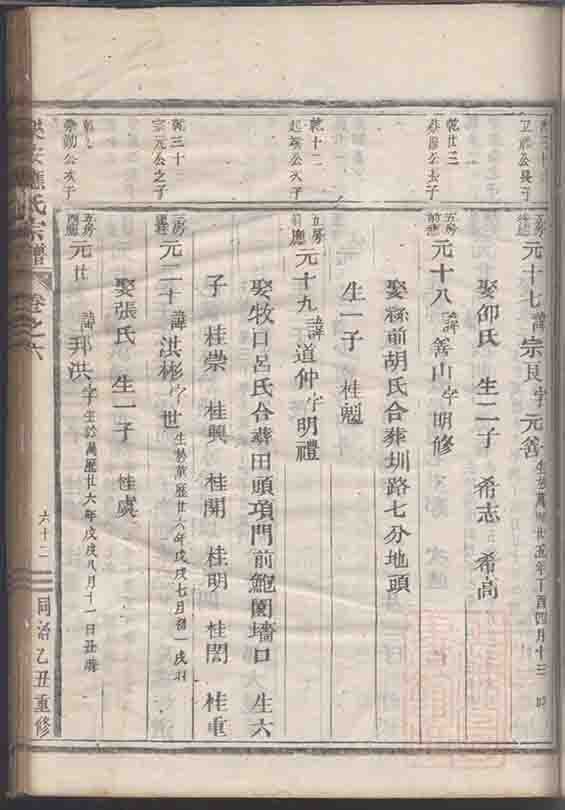 元十七 諱 宗良 字 元善 生於萬 廿五年丁酉四月十三 時
娶邵氏 生二子 希志 希高
乾廿三
五房
元十八 諱 善山 字 明修
娶縣前胡氏合葬圳路七分地頭
生一子 桂魁
乾十二
起 公次子
五房
前應
元十九 諱 道仲 字 明禮
娶牧口呂氏合葬田頭項門前鮑園墻口 生六
子 桂崇 桂興 桂開 桂明 桂閣 桂重
乾三十
宗元公之子
元二十 諱 洪彬 字 世 生於萬歷廿六年戊戌七月初一戌時
娶張氏 生一子 桂虞
公次子
五房
元廿 諱 邦洪 字 生於萬歷廿六年戊戌八月十一日丑時
應氏宗譜 卷之六 六十二 同治乙丑重修